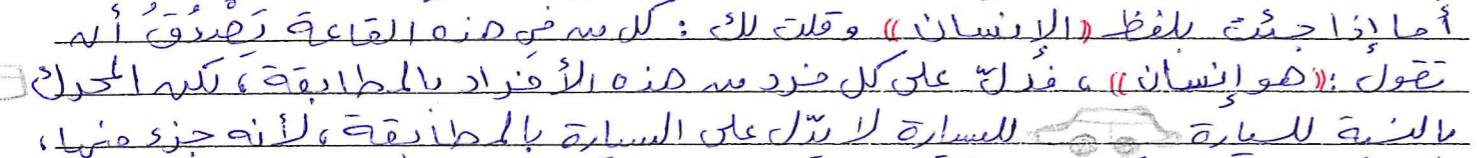 أما إذا جئت بلفظ «الإنسان» وقلت لك : كل من في هذه القاعة يَصْدُقُ أن
تقول : «هو إنسان» ، فدلّ على كل فرد من هذه الأفراد بالمطابقة ، لكن المحرك
بالنسبة للسيارة للسيارة لا يدّل على السيارة بالمطابقة ، لأنه جزء منها ،